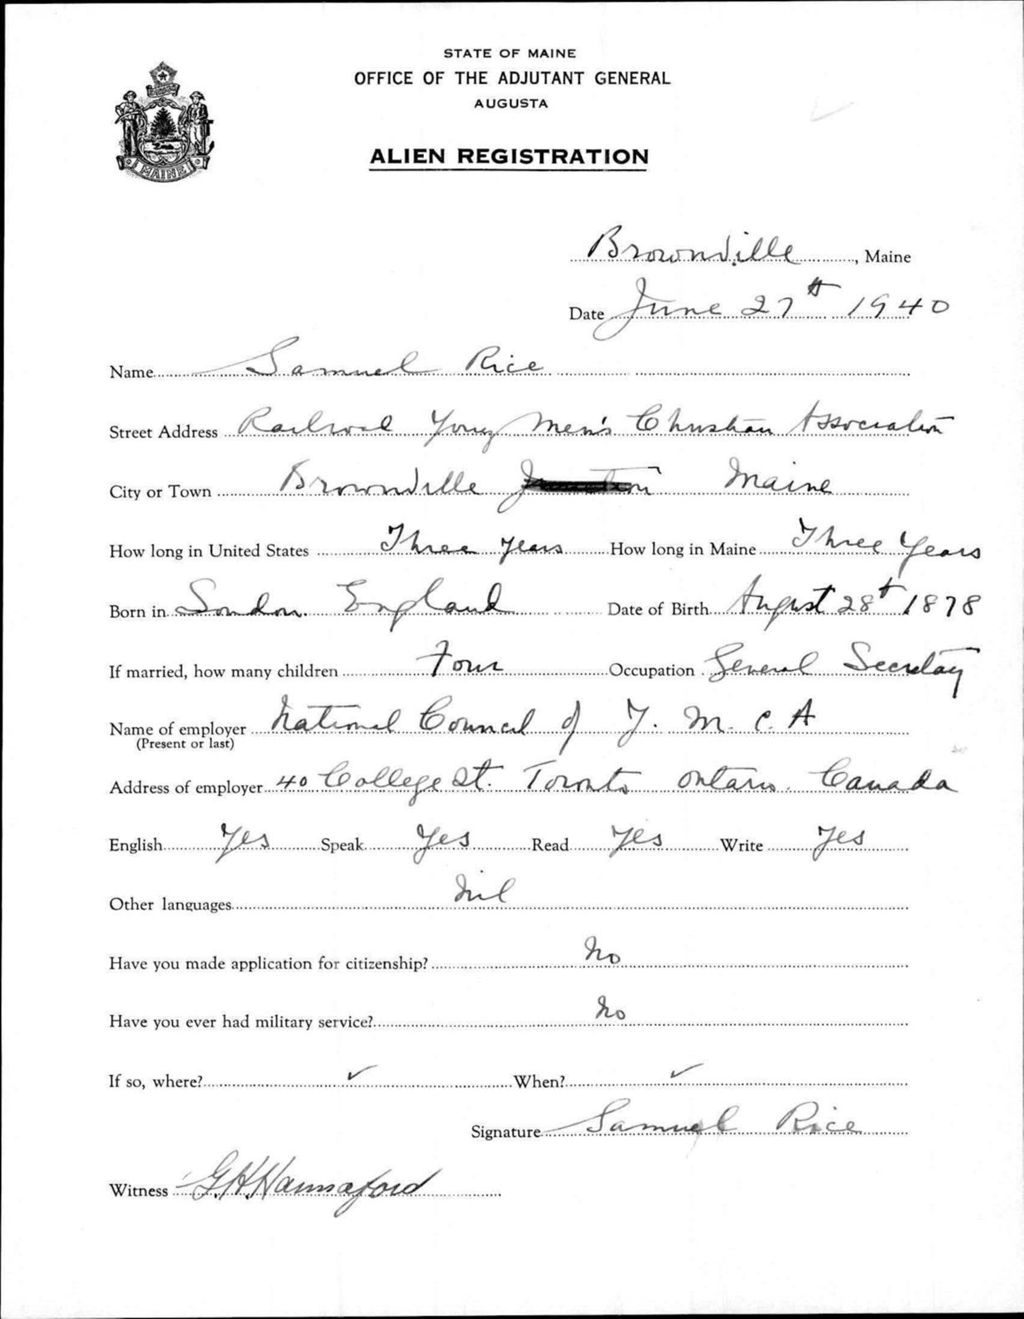 STATE OF MAINE
OFFICE OF THE ADJUTANT GENERAL
AUGUSTA
ALIEN REGISTRATION
MAINE
Brownville, Maine
Date June 27th 1940
Name Samuel Rice
Street Address Railroad Young Men's Christian Association
City or Town Brownville Maine
How long in United States Three years How long in Maine Three Years
Born in London. England Date of Birth August 28th 1878
If married, how many children Four Occupation General Secretary
Name of employer National Council of Y. M. C. A
(Present or last)
Address of employer 40 College St. Toronto Ontario. Canada
English Yes Speak Yes Read Yes Write Yes
Other languages Nil
Have you made application for citizenship? No
Have you ever had military service? No
If so, where? ✓ When? ✓
Signature Samuel Rice
Witness G.H. Hannaford